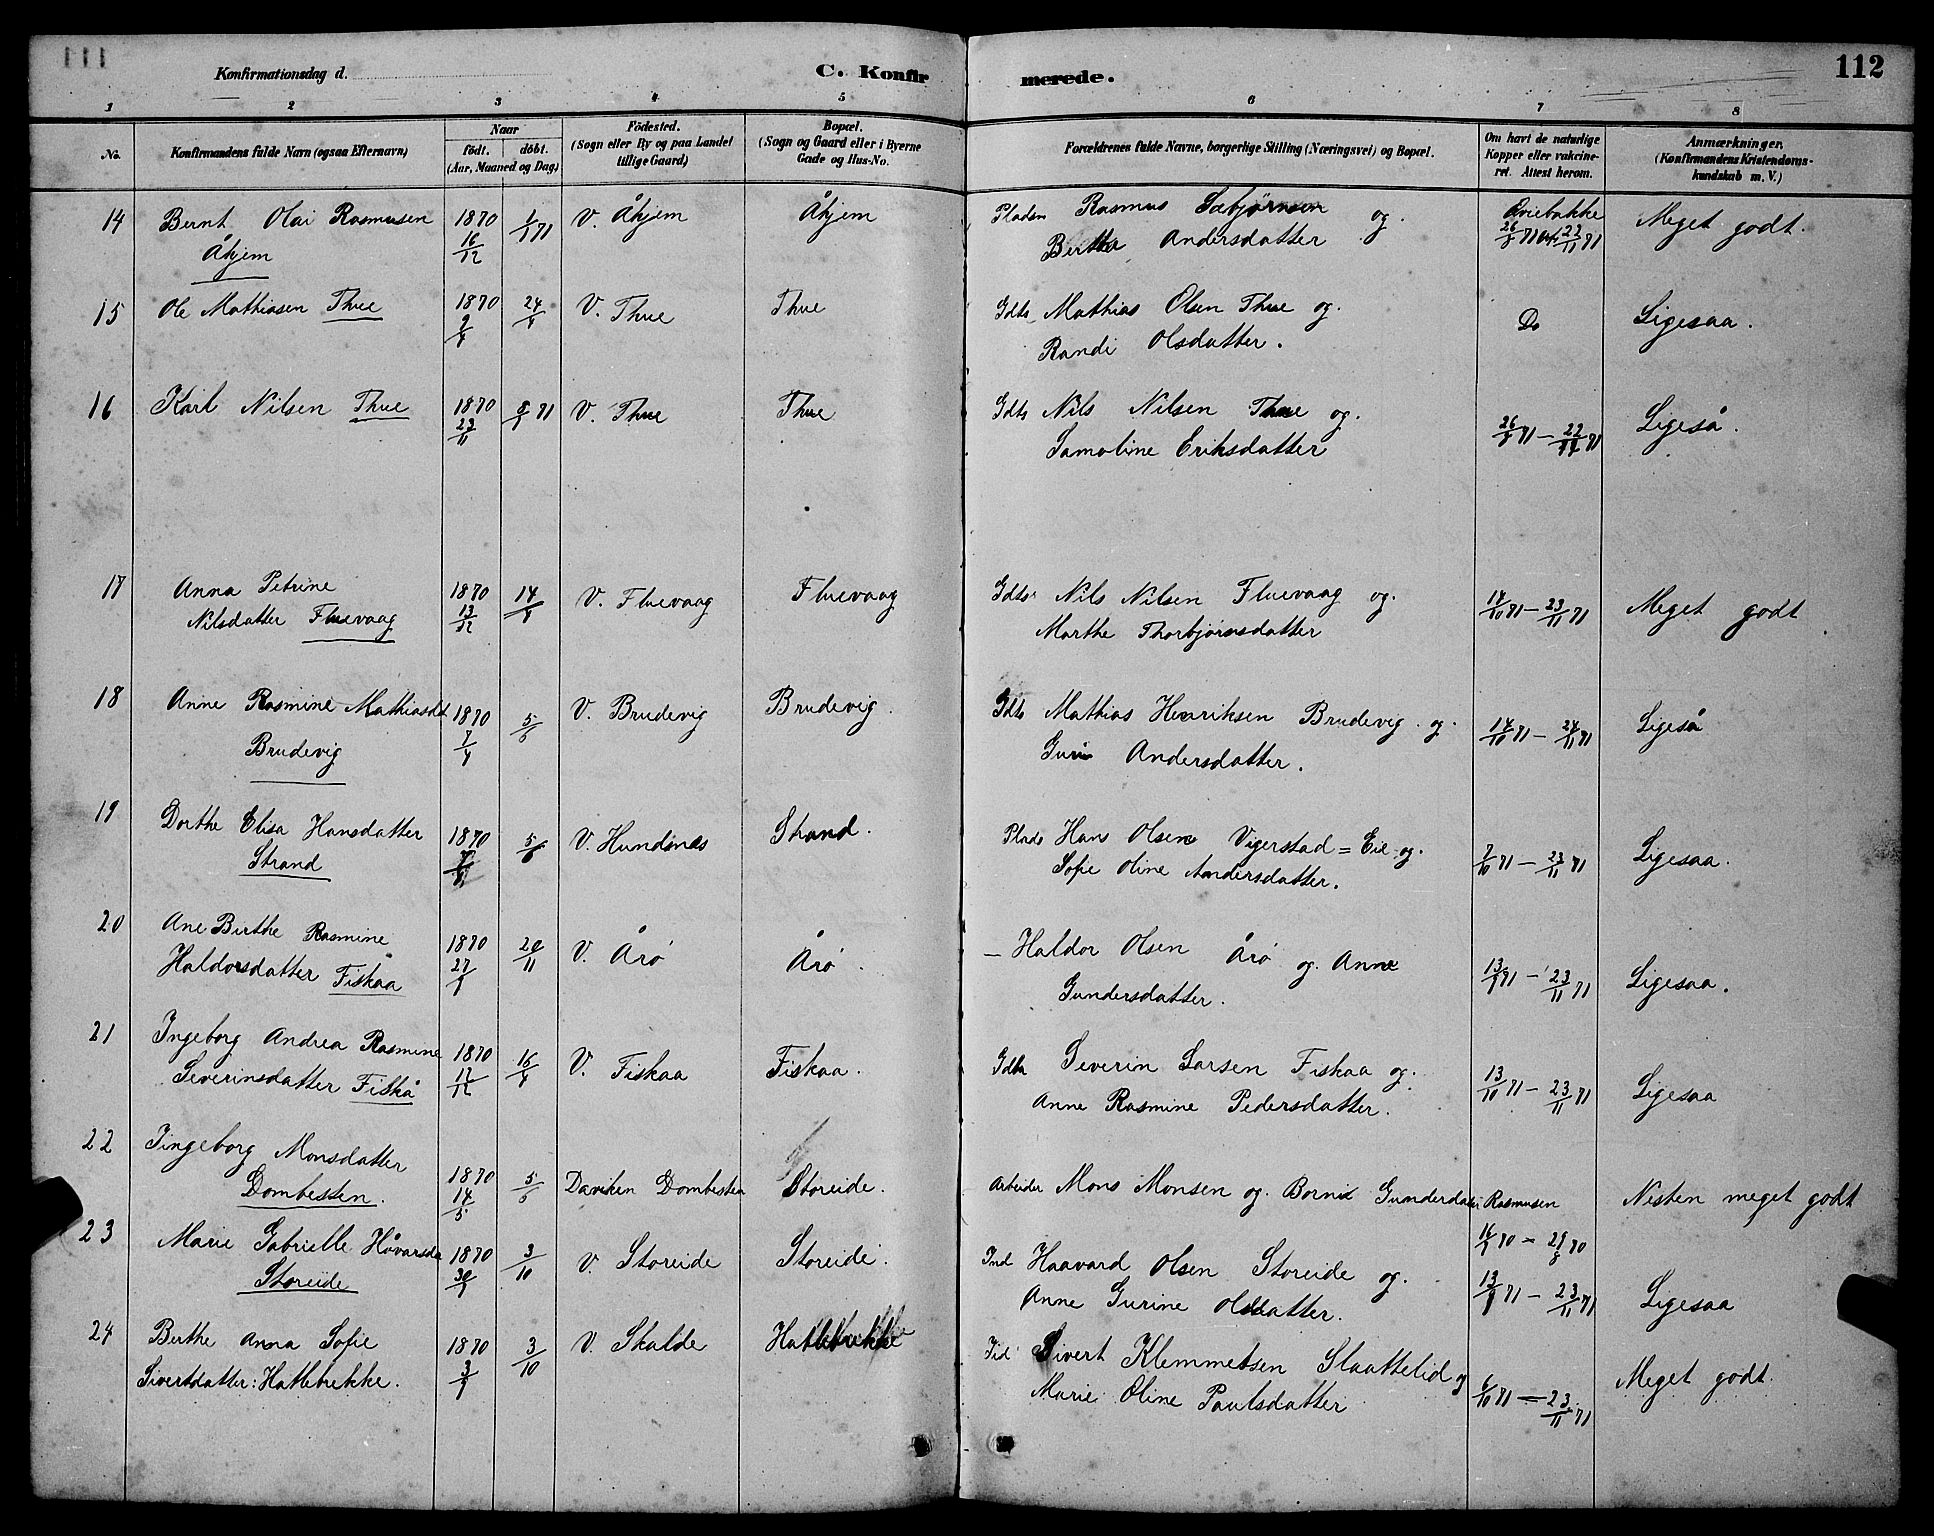 111
Konfirmationsdag d.
C. Konfir
merede.
112
1 2 3 4 5 6 7 8
No.
Konfirmandens fulde Navn (ogsaa Efternavn)
Naar
födt. döbt.
(Aar, Maaned og Dag)
Födested.
(Sogn eller By og paa Landet
tillige Gaard)
Bopæl.
(Sogn og Gaard eller i Byerne
Gade og Hus-No.
Forældrenes fulde Navne, borgerlige Stilling (Næringsvei) og Bopæl.
Om havt de naturlige
Kopper eller vakcine-
ret. Attest herom.
Anmærkninger.
(Konfirmandens Kristendoms-
kundskab m. V.)
14 Bernt Olai Rasmusen 1870 1/1 71 V. Åhjem Åhjem Pladsm Rasmus Sæbjørnsen og Meget godt.
Åhjem 16/12 Birtha Andersdatter 22/11 71
15 Ole Mathiasen Thue 1870 24/4 V. Thue Thue Gdts Mathias Olsen Thue og Do Ligesaa.
Randi Olsdatter.
16 Karl Nilsen Thue 1870 8/1 71 V. Thue Thue Gdts Nils Nilsen Thue og. Ligeså.
23/11 Samoline Eriksdatter
17 Anna Petrine 1870 14/4 V. Fluevaag Fluevaag Gdts Nils Nilsen Fluevaag og. 14/10 71 – 23/11 71 Meget godt
Nilsdatter Fluevaag 13/12 Marthe Thorbjørnsdatter
18 Anne Rasmine Mathiasdt 1870 5/6 V. Brudevig Brudevig. Gdts Mathias Henriksen Brudevig. og. 14/10 71 – 24/11 71 Ligeså
Brudevig 7/4 Guri Andersdatter.
19 Dorthe Elisa Hansdatter 1870 5/6 V. Hundsnes Strand. Plads Hans Olsen Vigerstad = Eie og. 7/10 71 – 23/11 71 Ligesaa.
Strand Sofie Oline Andersdatter.
20 Ane Birthe Rasmine 1870 20/11 V. Årø Årø. – Haldor Olsen Årø og. Anne 13/9 71 – 23/11 71 Ligesaa.
Haldorsdatter Fiskaa 27/9 Gundersdatter.
21 Ingeborg Andrea Rasmine 1870 16/4 V. Fiskaa Fiskaa. Gdts Severin Larsen Fiskaa og. 13/10 71 – 23/11 71 Ligesaa
Severinsdatter Fiskå 17/12 Anne Rasmine Pedersdatter.
22 Iingeborg Monsdatter 1870 5/6 Daviken Dombesten Storeide. Arbeider Mons Monsen og. Bornil Gunderdatr Rasmusen Nesten meget godt
Dombesten. 14/5
23 Marie Gabrielle Håvarsda 1870 3/10 V. Storeide Storeide. Ind Haavard Olsen Storeide og. 13/9 71 – 23/11 71 Ligesaa
Storeide 30/9 Anne Gurine Olsdatter.
24 Birthe Anna Sofie 1870 3/10 V. Skalde Hatlebrekke Sivert Klemmetsen Slaattelid og 6/10 71 – 23/11 71 Meget godt.
Sivertdatter: Hatlebrekke. 3/9 Marie Oline Paulsdatter